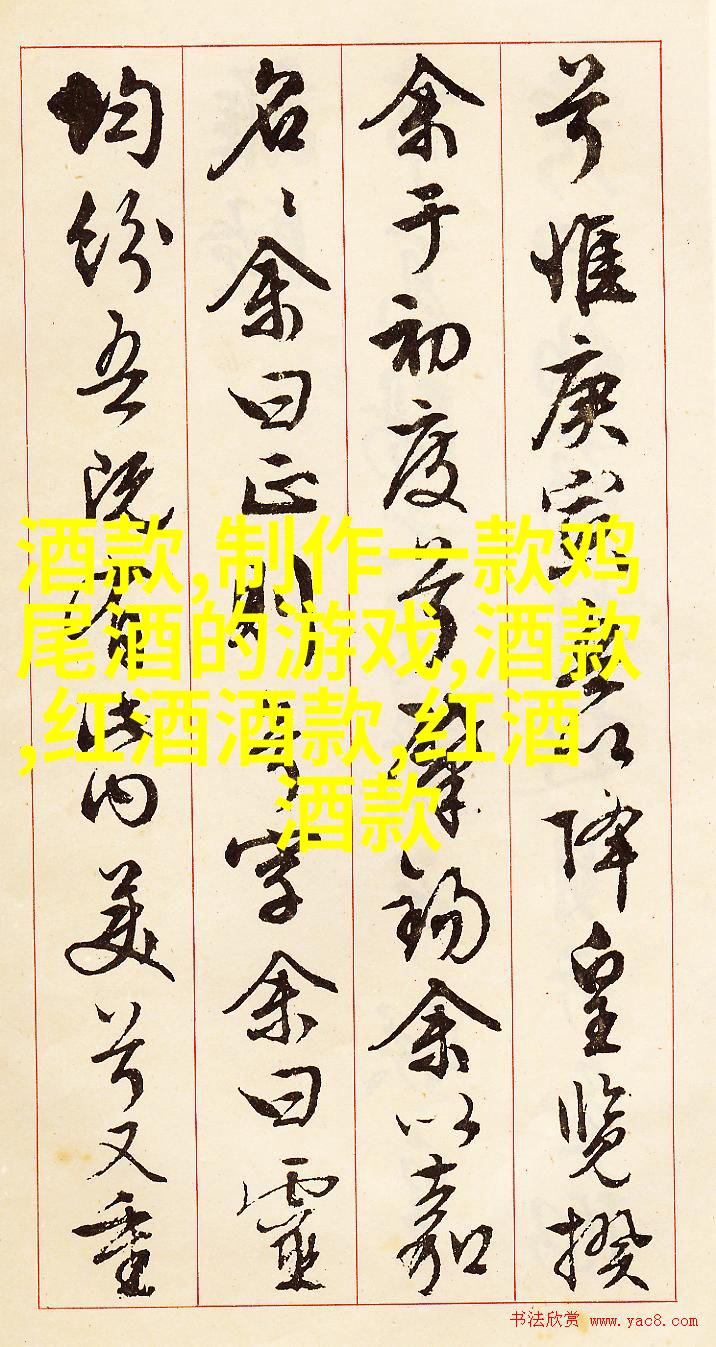 兮惟庚寅吾以降皇覽揆
余于初度兮肇錫余以嘉
名〻余曰正則兮字余曰靈
均紛吾既有此內美兮又重
酒款,制作一款鸡
尾酒的游戏,酒款
,红酒酒款,红酒
酒款
书法欣赏 www.yac8.com